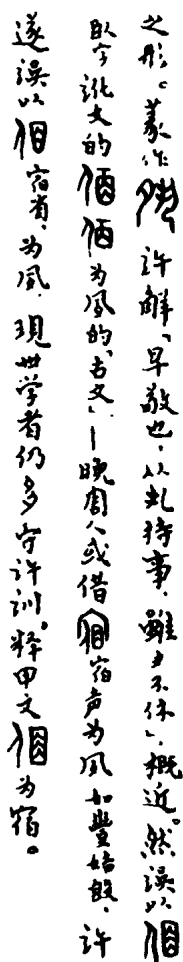 之形。篆作許解「早敬也，从丮持事，雖夕不休」，概近。然誤以
臥字訛文的为夙的「古文」—晚周人或借宿声为夙如豐姞𣪘，許
遂誤以宿省，为夙，現世学者仍多守許訓，释甲文为宿。